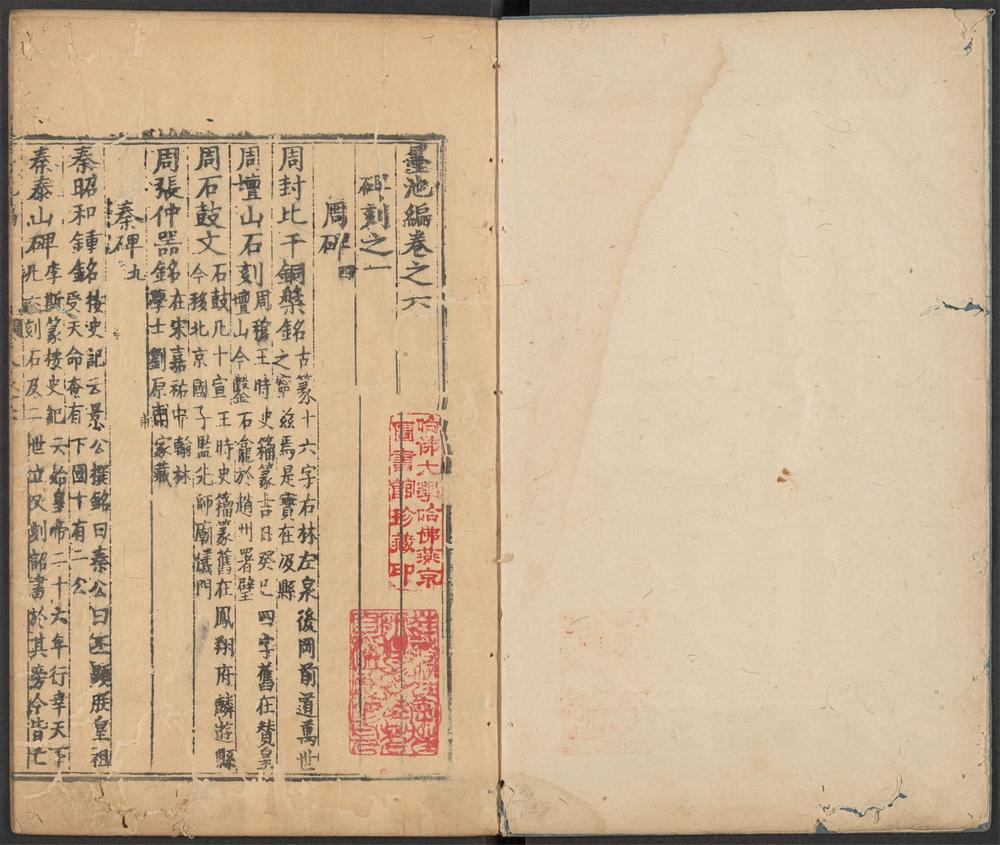 墨池編卷之六
碑刻之一
周碑四
周封比干銅槃銘 古篆十六字右林左泉後岡前道萬世
之寧茲焉是寶在汲縣
周壇山石刻 周穆王時史籀篆吉日癸巳四字舊在贊皇
壇山今鑿石龕於趙州署壁
周石鼓文 石鼓凡十宣王時史籀篆舊在鳳翔府麟遊縣
今移北京國子監先師廟儀門
周張仲器銘 銘在宋嘉祐中翰林
學士劉原甫家藏
秦碑九
秦昭和鍾銘 按史記云景公撰銘曰秦公曰丕顯朕皇祖
受天命奄有下國十有二公
秦泰山碑 李斯篆按史記云始皇帝二十六年行幸天下
凡六刻石及二世立又刻詔書於其旁今皆亡
哈佛大學哈佛燕京
圖書館珍藏印